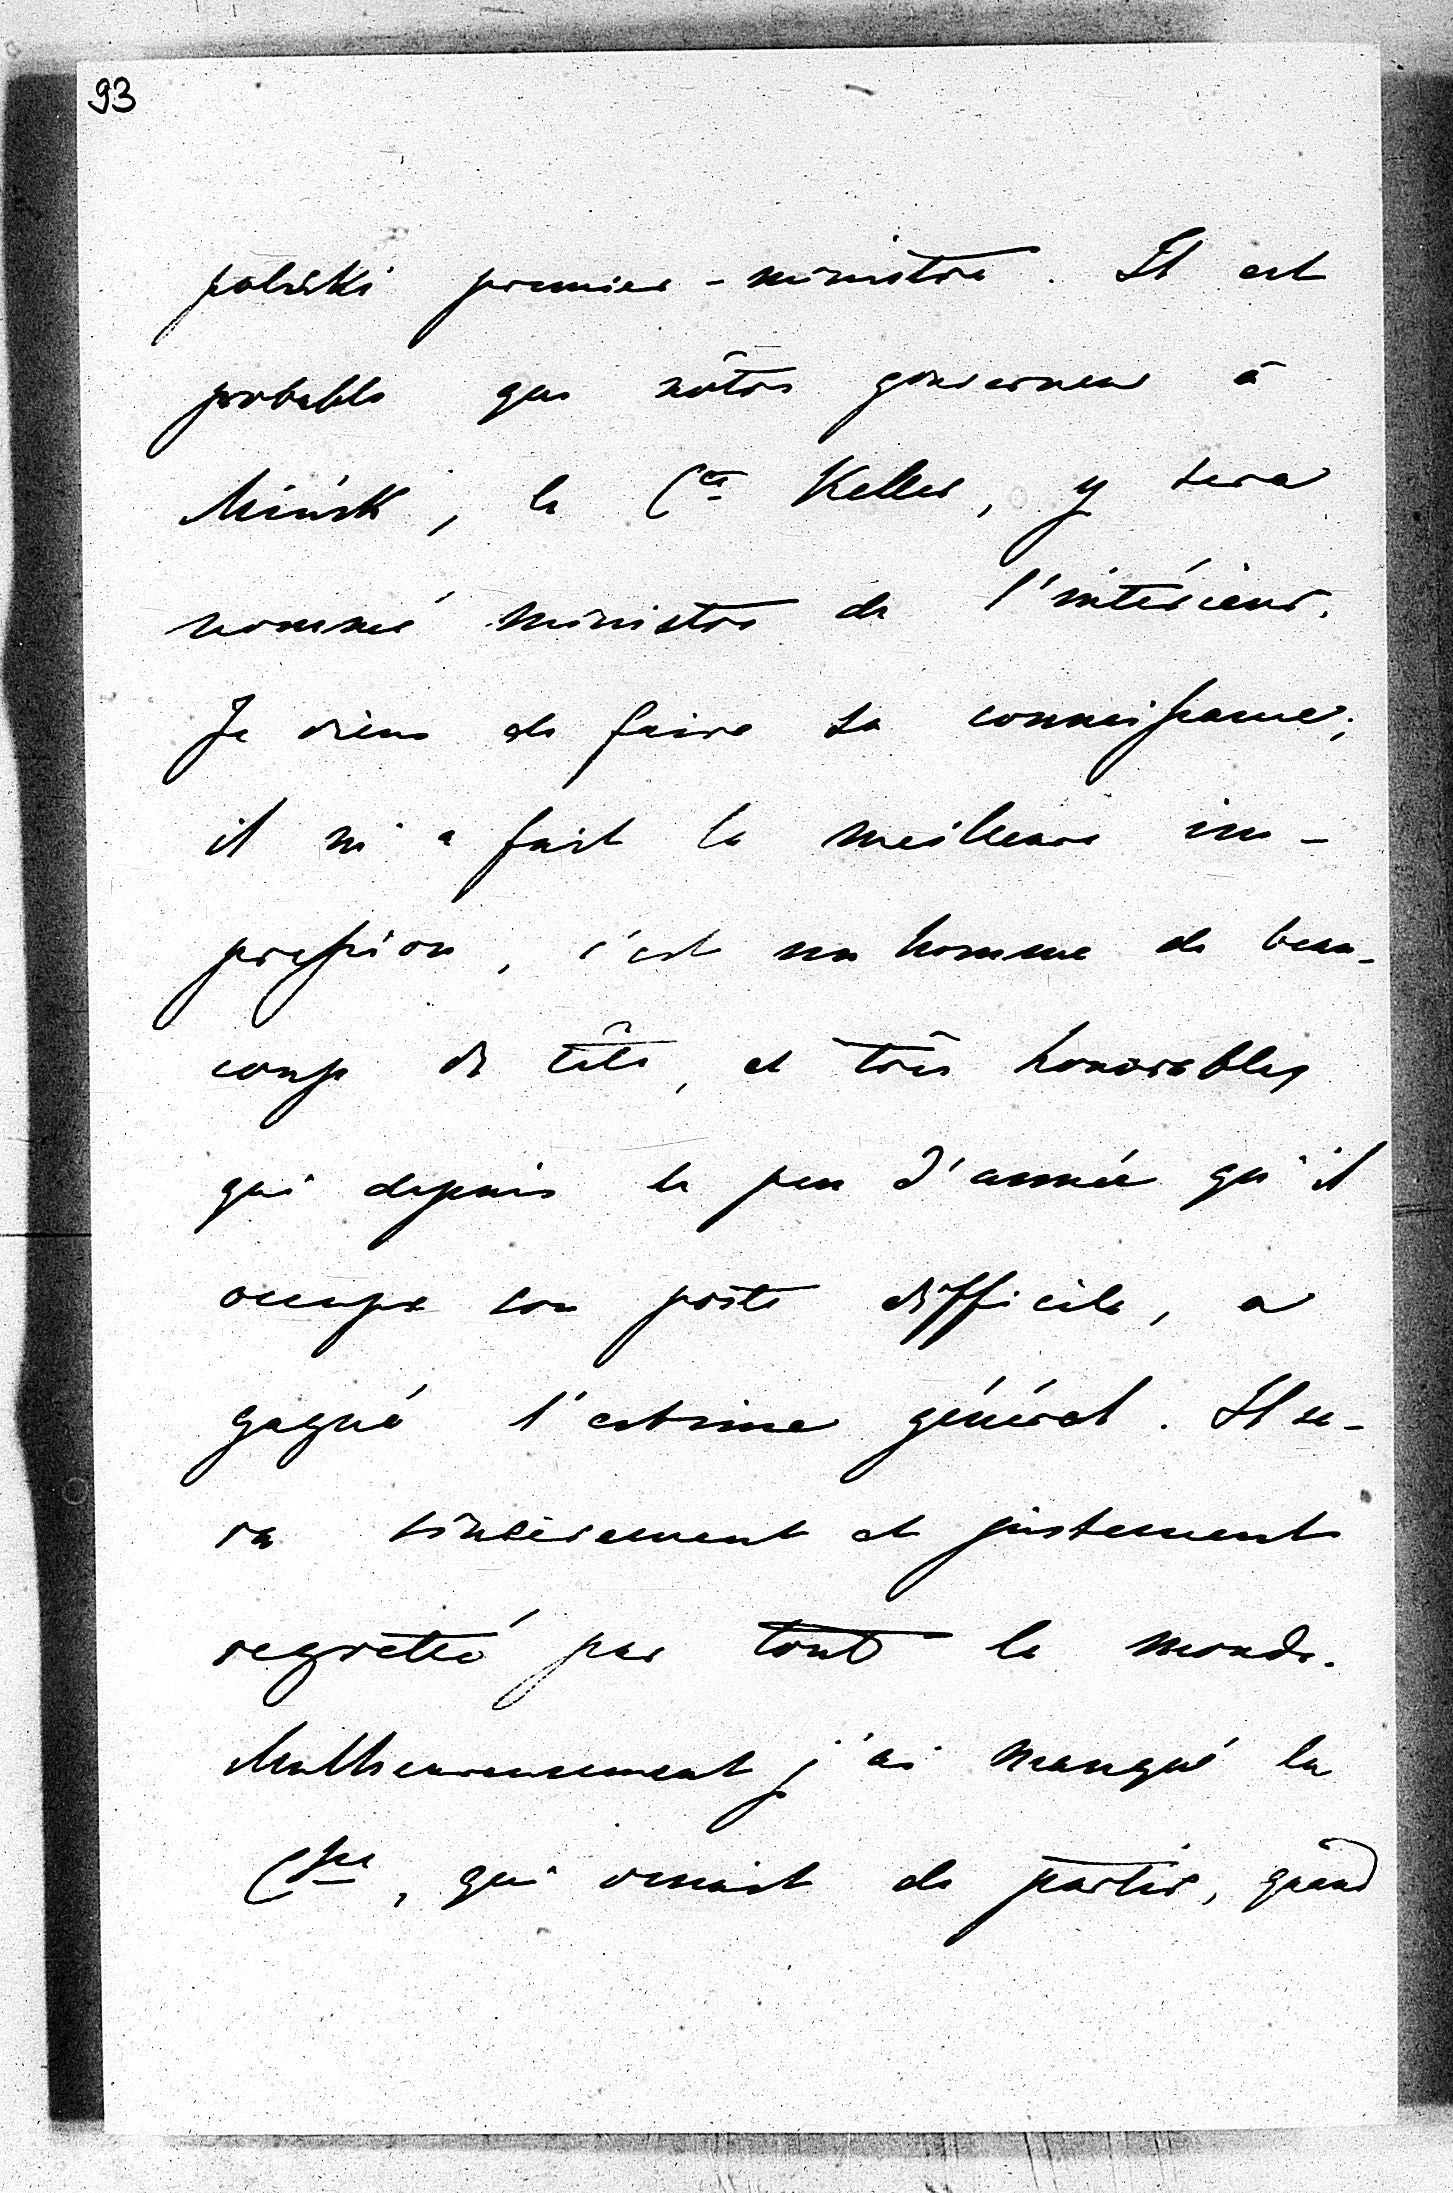 93
polski premier-ministre. Il est
probable que nôtre gouverneur à
Mińsk, le Cte Keller, y sera
nommé ministre de l'intérieur.
Je viens de faire sa connaissance;
il m'a fait la meilleure im-
pression, c'est un homme de beau-
coup de tête, et très honorable,
qui depuis le peu d'année qu'il
occupe son poste difficile, a
gagné l'estime général. Il se-
ra sincèrement et justement
regretté par tout le monde.
Malheureusement j'ai manqué la
Csse, qui venait de partir, quand